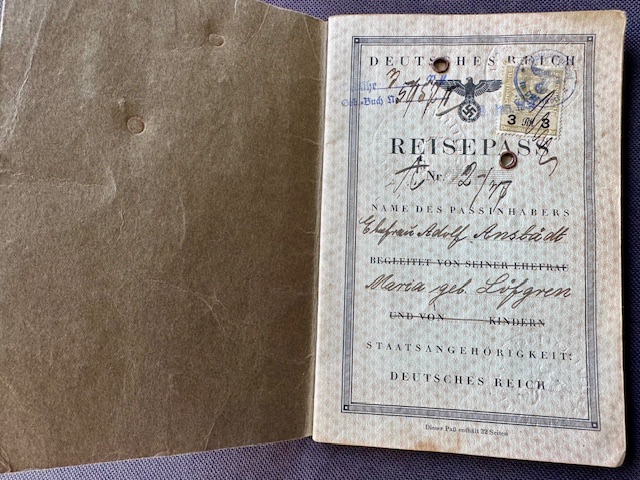 DEUTSCHES REICH
Geb.-Buch Nr.
3 RM 3
REISEPASS
Nr. 2
NAME DES PASSINHABERS
Ehefrau Adolf Anstädt
BEGLEITET VON SEINER EHEFRAU
Maria geb. Löfgren
UND VON KINDERN
STAATSANGEHÖRIGKEIT:
DEUTSCHES REICH
Dieser Paß enthält 32 Seiten